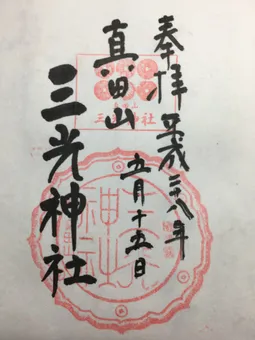 奉拝 平成二十八年
五月十五日
真田山
三光神社
三光神社